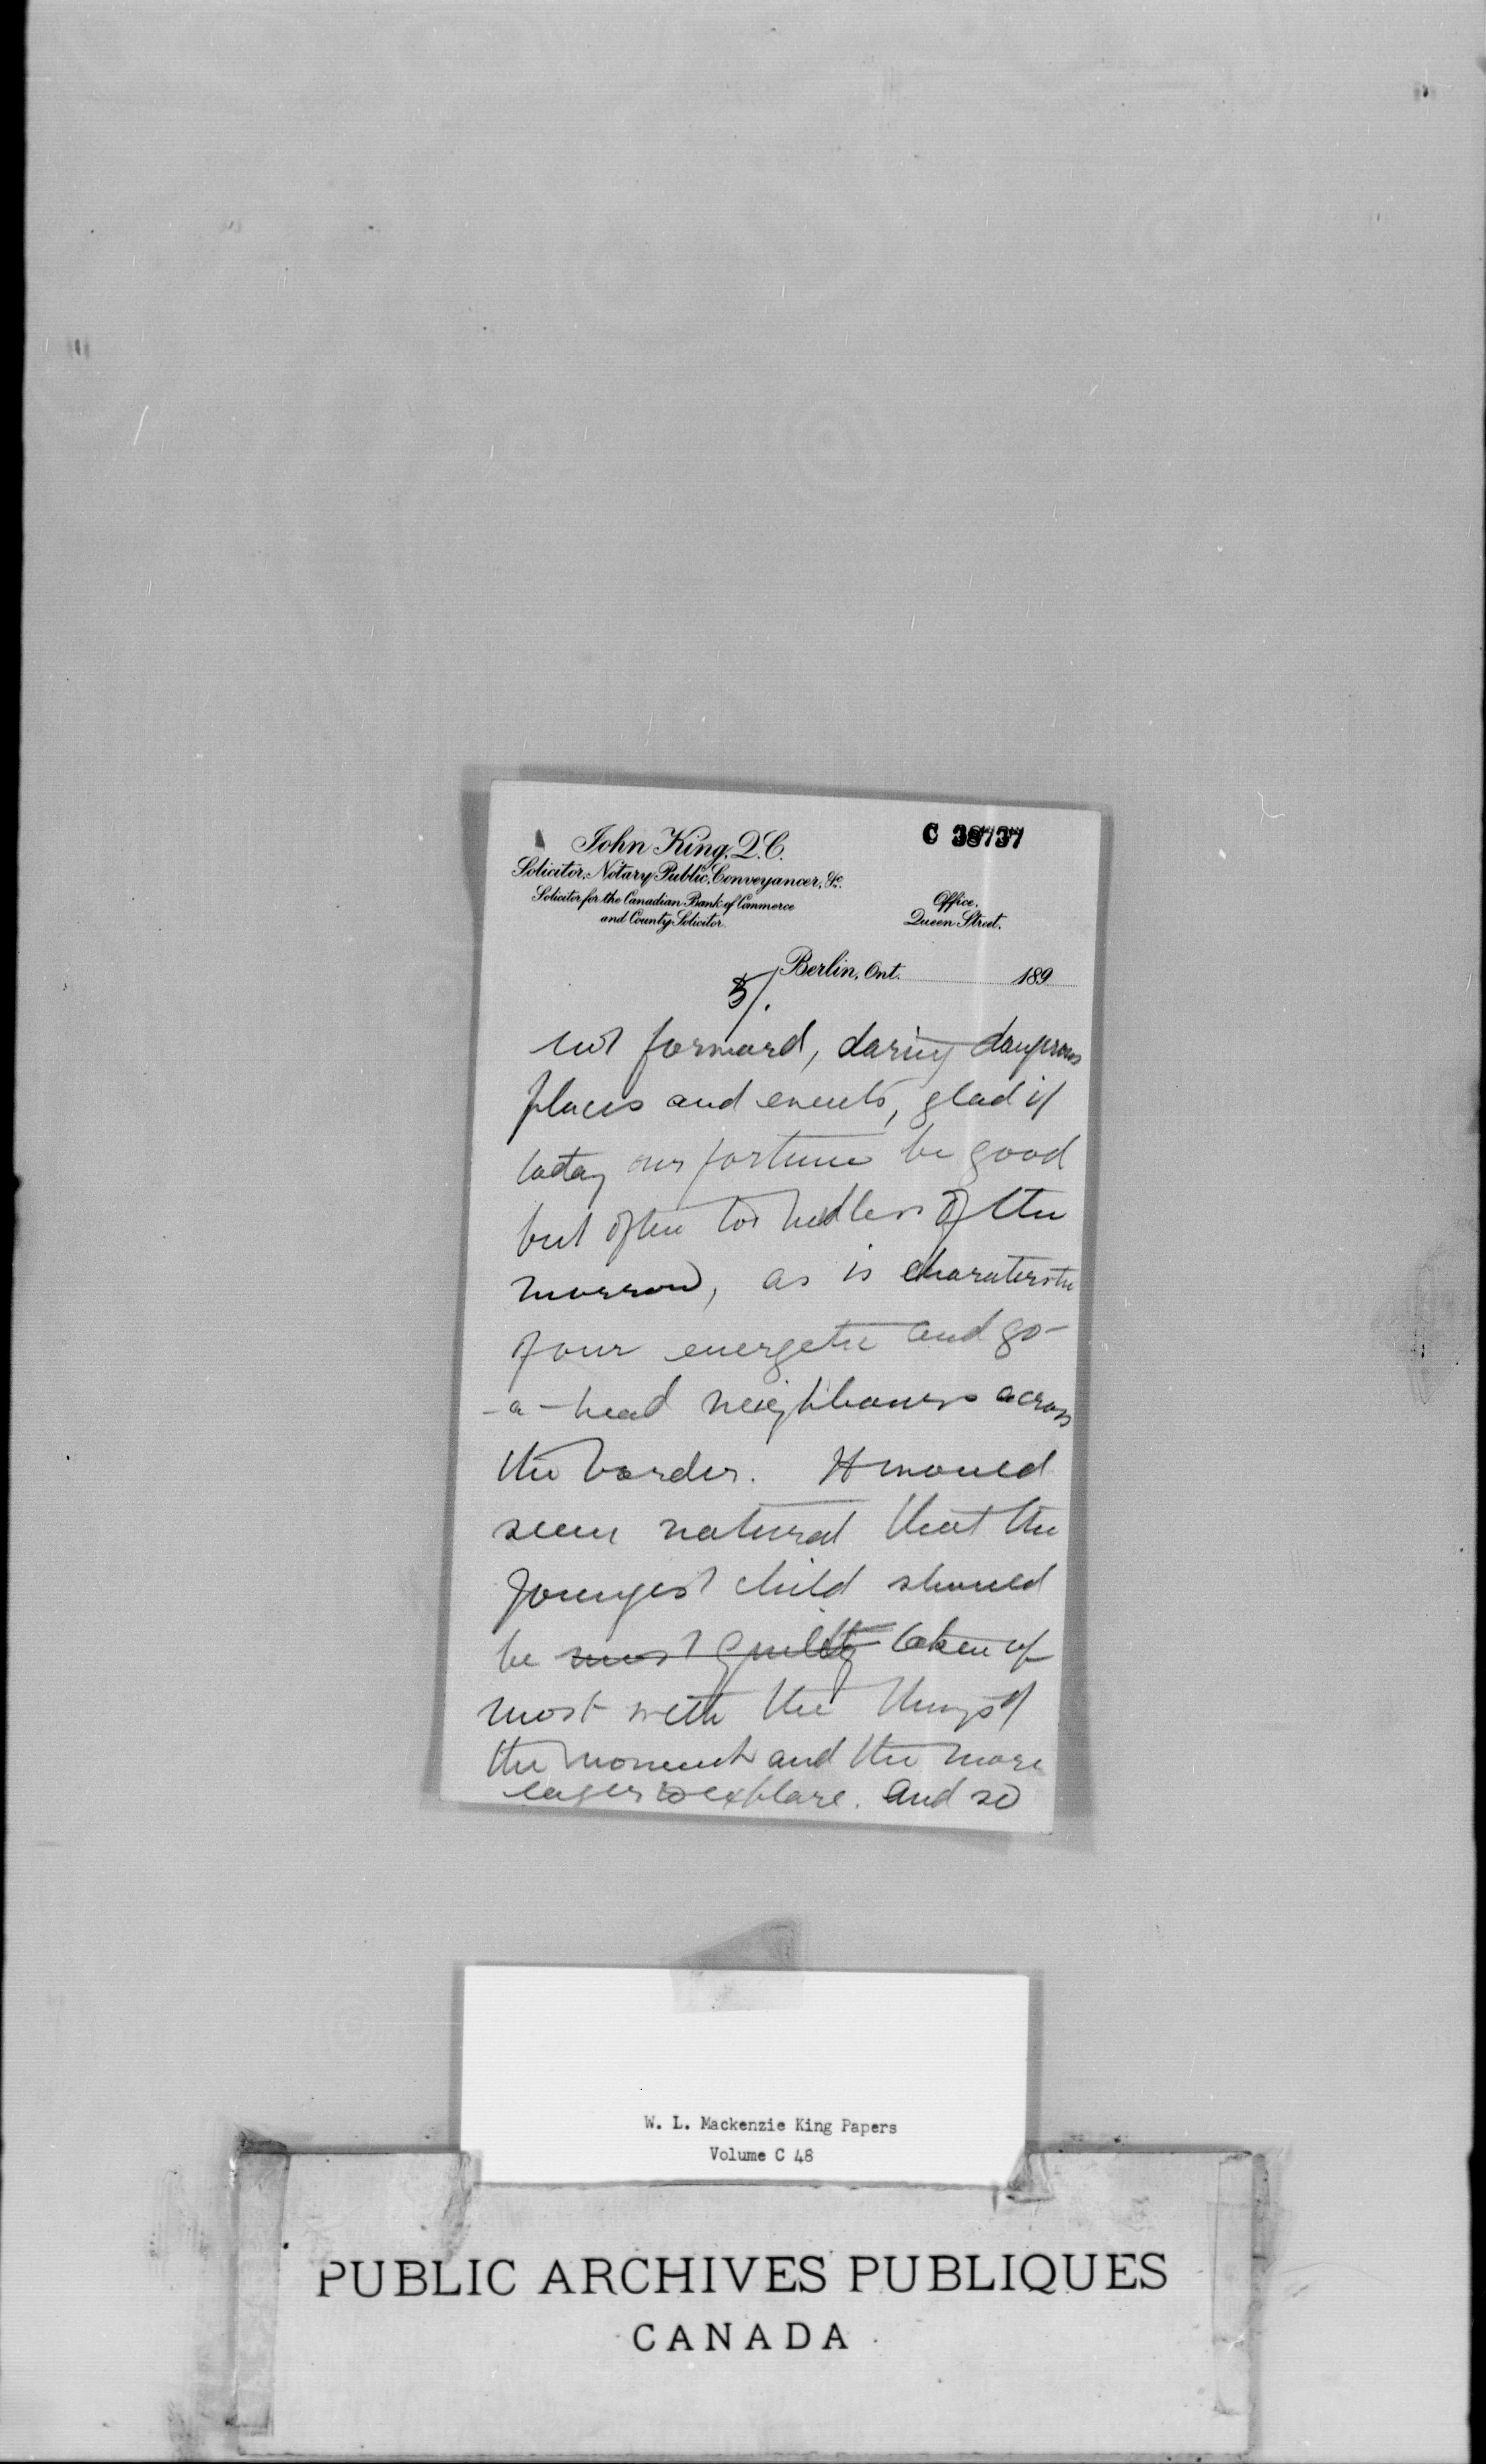 John King, Q.C.
Solicitor, Notary Public, Conveyancer, &c.
Solicitor for the Canadian Bank of Commerce
and County Solicitor.
C 38737
Office,
Queen Street.
Berlin, Ont. 189
5/.
forward, daring dangerous
places and events, glad if
today our fortune be good
but often too heedless of the
morrow, as is charateristic
of our energetic and go-
-a-head neighbours across
the border. It would
seem natural that the
youngest child should
be most guilty taken up
most with the things of
the moment and the more
eager to explore. and so
W. L. Mackenzie King Papers
Volume C 48
PUBLIC ARCHIVES PUBLIQUES
CANADA